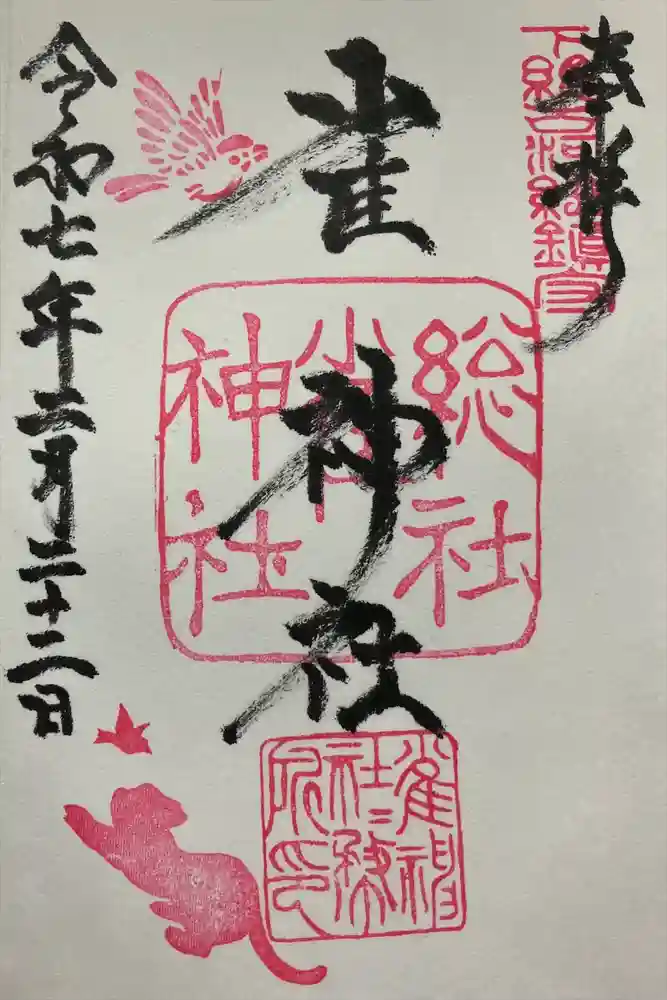 奉拝
下総古河総鎮守
雀神社
総社
雀
神社
雀神
社社務
所印
令和七年二月二十二日